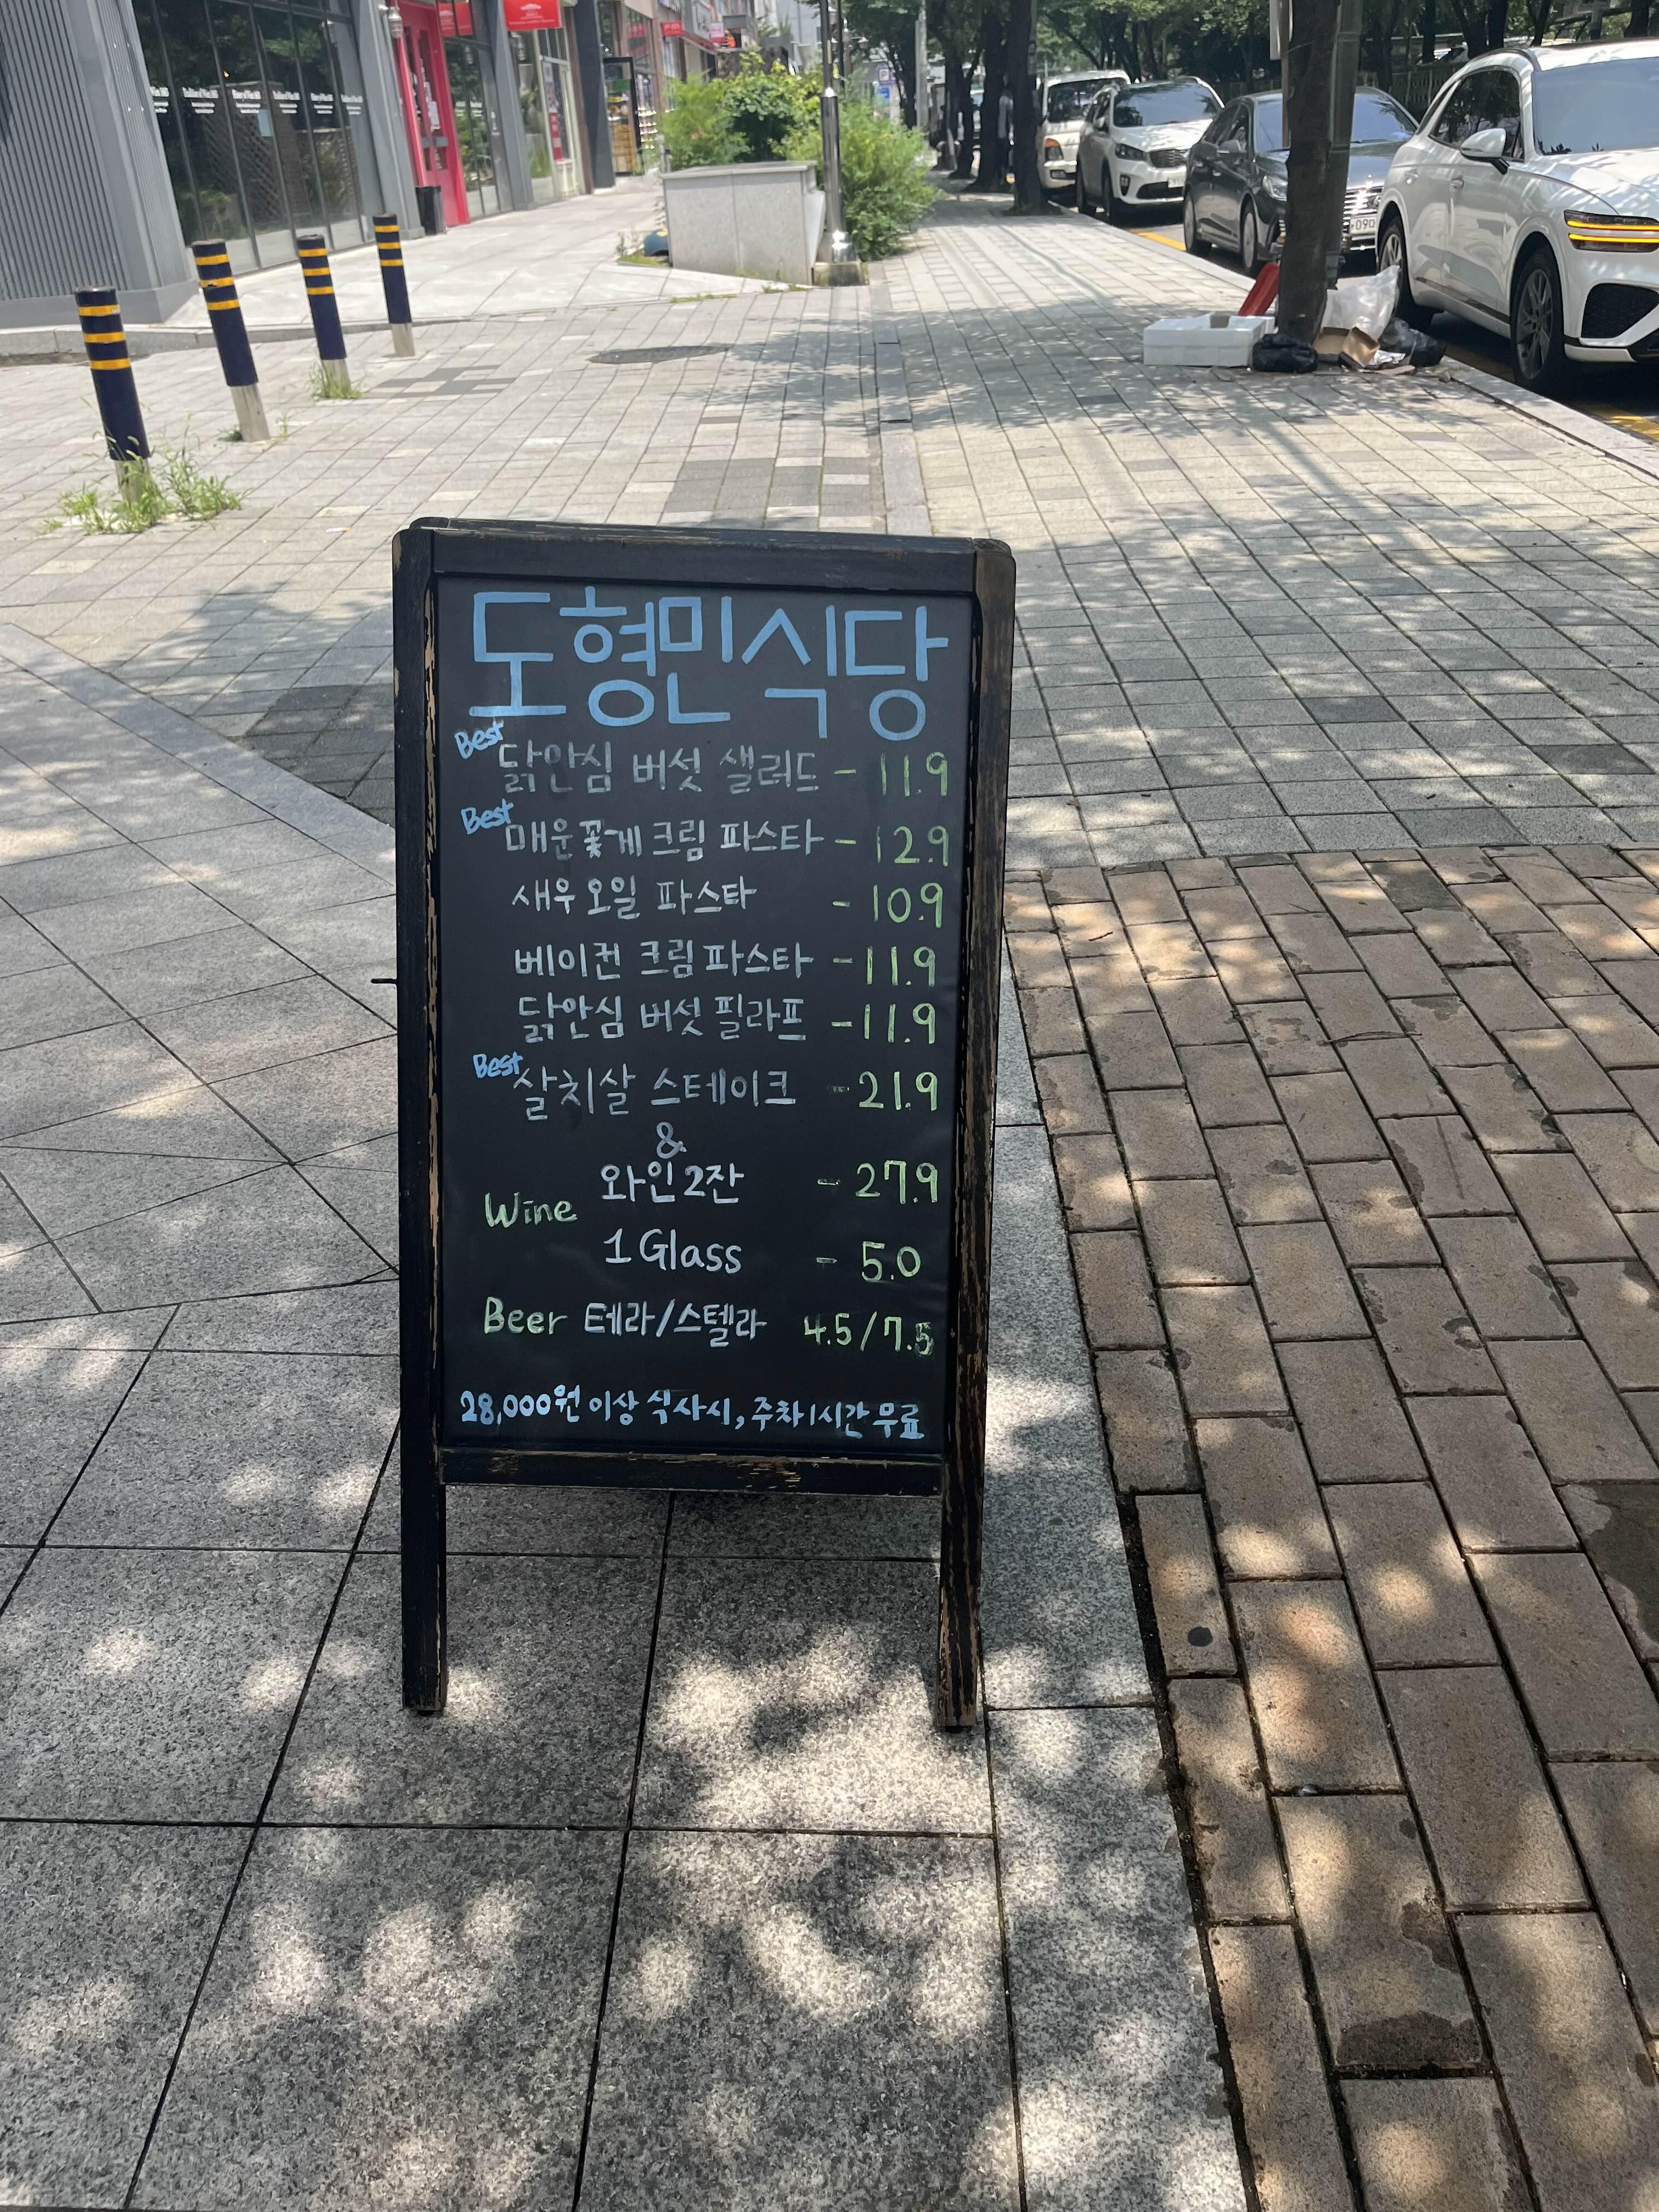 도형민식당
Best
닭안심 버섯 샐러드 - 11.9
Best
매운꽃게크림 파스타 - 12.9
새우오일 파스타 - 10.9
베이컨 크림파스타 - 11.9
닭안심 버섯 필라프 - 11.9
Best
살치살 스테이크 - 21.9
&
와인2잔 - 27.9
Wine
1 Glass - 5.0
Beer 테라/스텔라 4.5/7.5
28,000원 이상 식사시, 주차1시간 무료